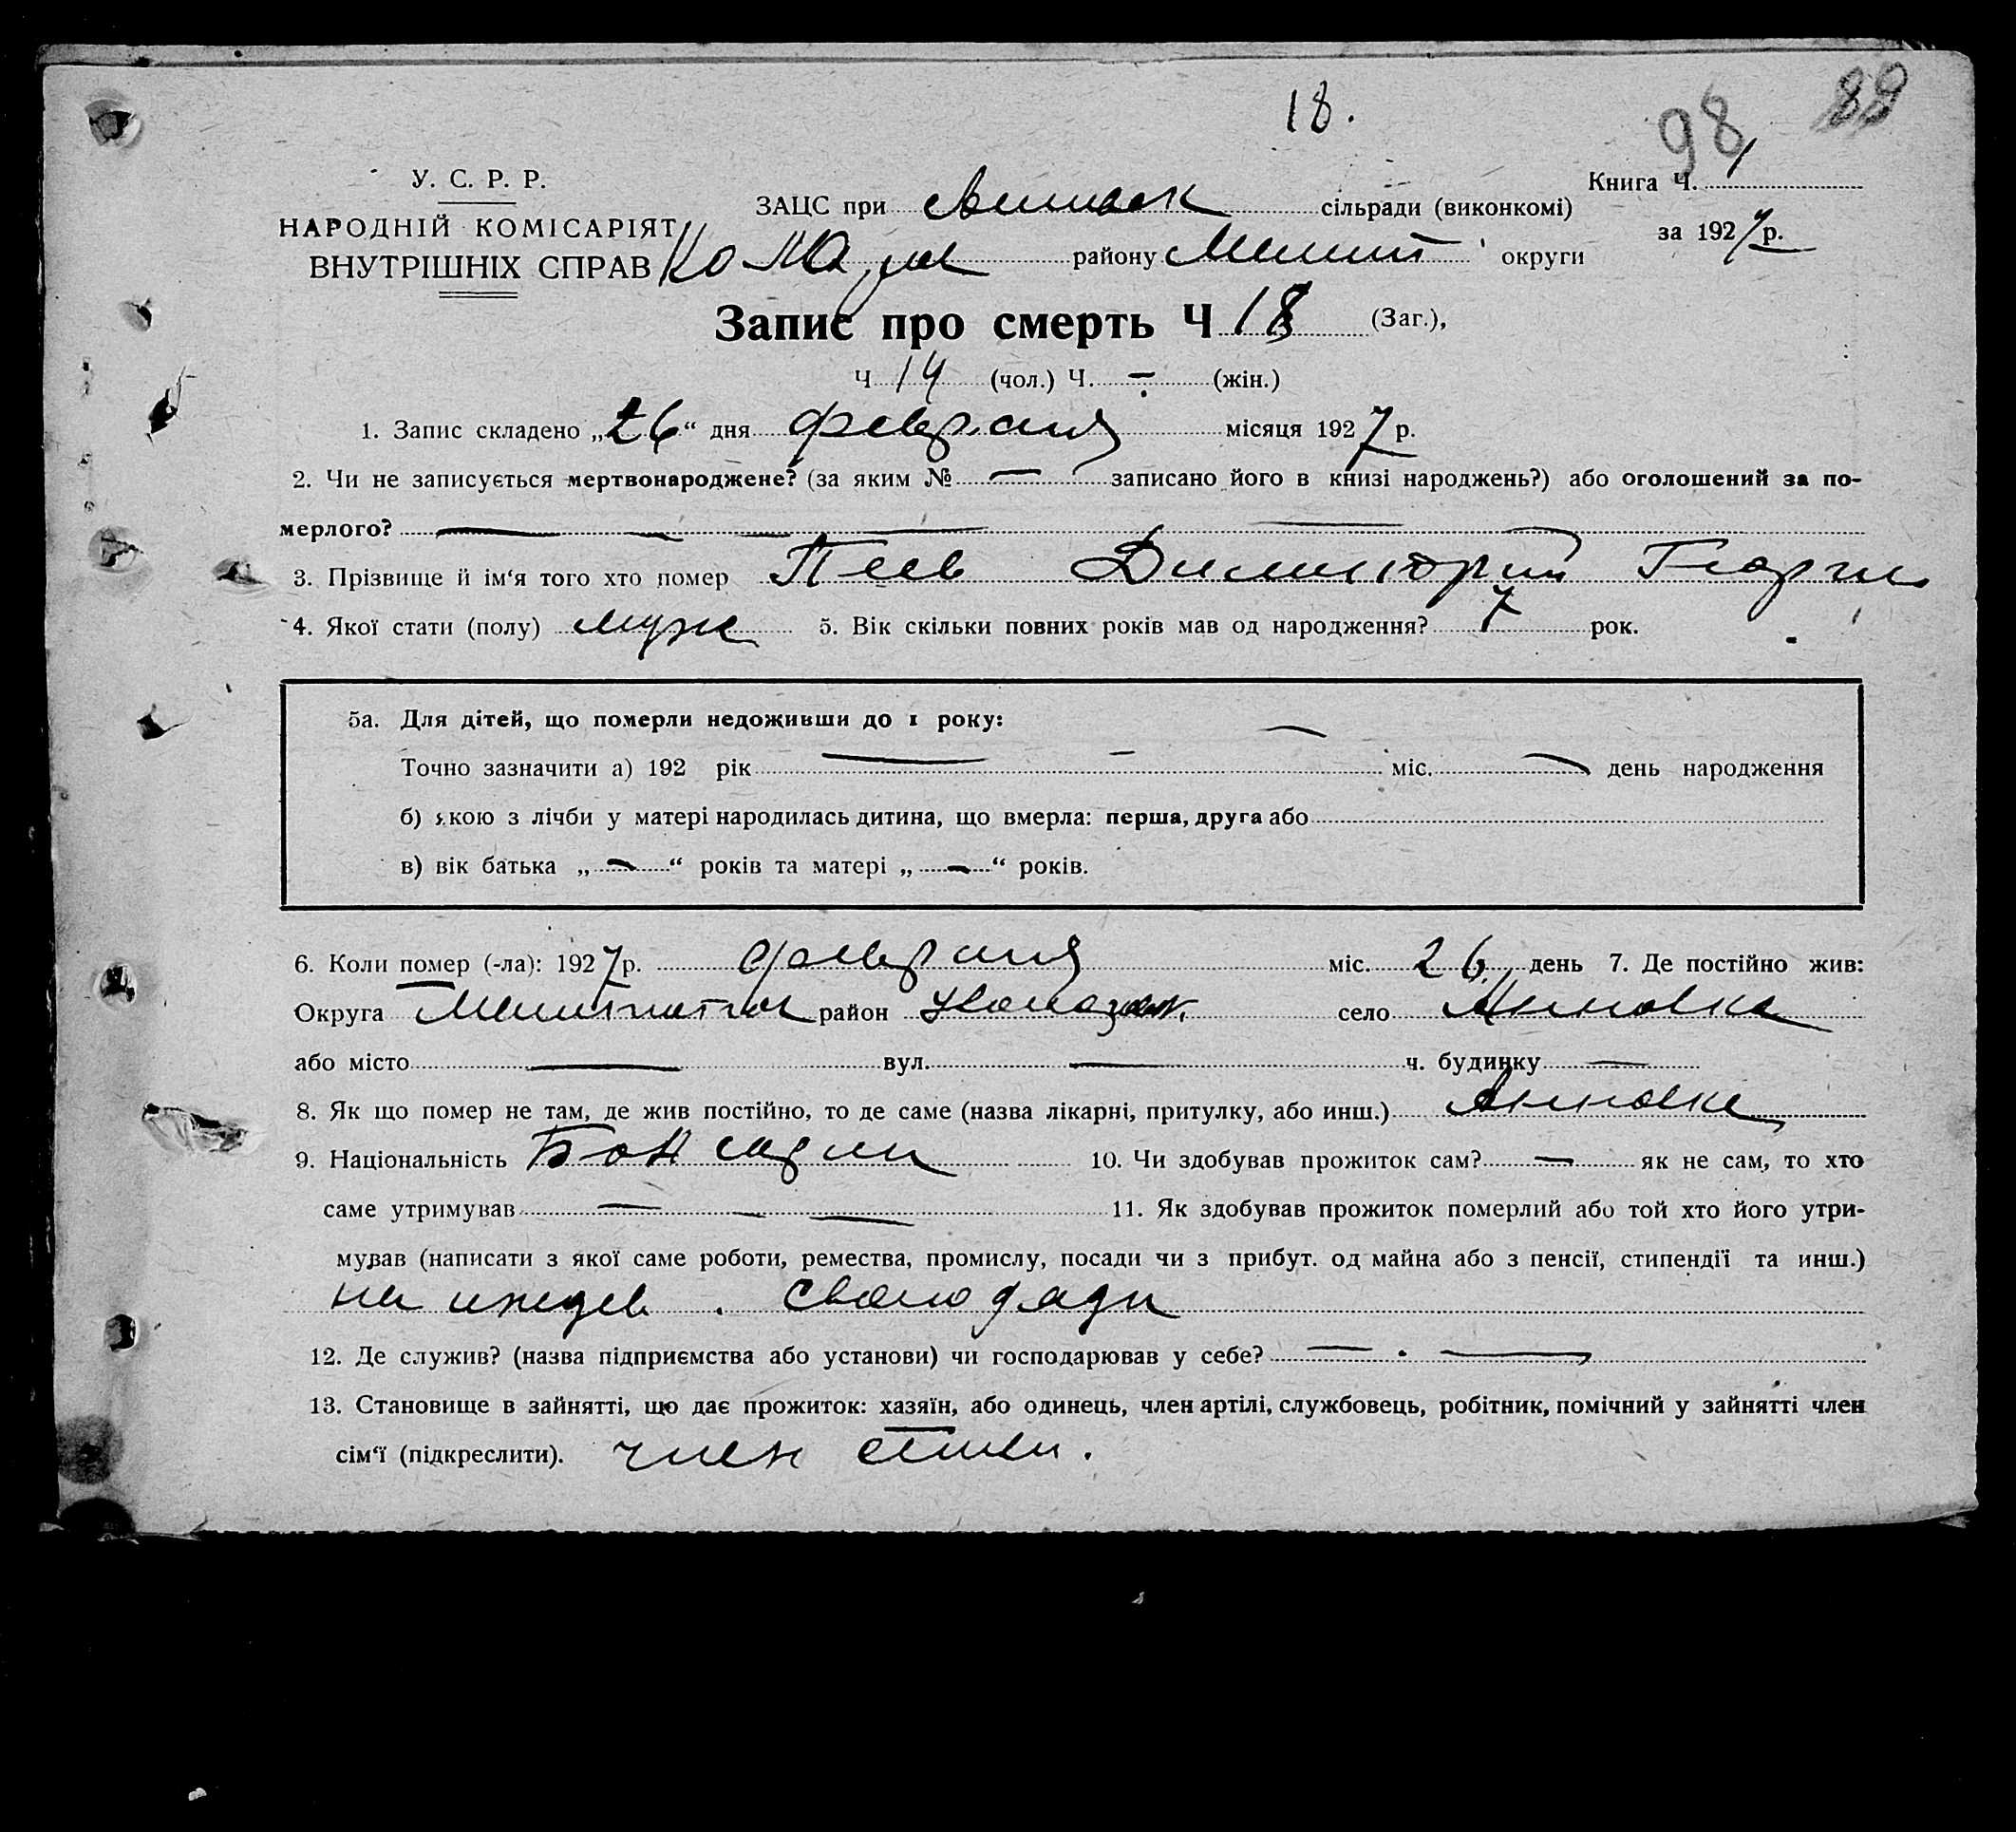 18.
98
89
У. С. Р. Р.
НАРОДНІЙ КОМІСАРІЯТ
ВНУТРІШНІХ СПРАВ
ЗАЦС при сільради (виконкомі)
району Мелит округи
Книга Ч. 1
за 1927 р.
Запис про смерть Ч 18 (Заг.),
Ч 14 (чол.) Ч. — (жін.)
1. Запис складено „26“ дня февраля місяця 1927 р.
2. Чи не записується мертвонароджене? (за яким № — записано його в книзі народжень?) або оголошений за по-
мерлого? — — — — — —
3. Прізвище й ім‘я того хто помер Пеев Димитрий Георги
4. Якої стати (полу) муж 5. Вік скільки повних років мав од народження? 7 рок.
5а. Для дітей, що померли недоживши до 1 року:
Точно зазначити а) 192 рік — — міс. — день народження
б) якою з лічби у матері народилась дитина, що вмерла: перша, друга або
в) вік батька „—“ років та матері „—“ років.
6. Коли помер (-ла): 1927 р. февраля міс. 26 день 7. Де постійно жив:
Округа район село Анновка
або місто — вул. — ч. будинку —
8. Як що помер не там, де жив постійно, то де саме (назва лікарні, притулку, або инш.) Анновке
9. Національність 10. Чи здобував прожиток сам? — як не сам, то хто
саме утримував — — — 11. Як здобував прожиток померлий або той хто його утри-
мував (написати з якої саме роботи, ремества, промислу, посади чи з прибут. од майна або з пенсії, стипендії та инш.)
на иждев. своего дяди
12. Де служив? (назва підприємства або установи) чи господарював у себе? — . —
13. Становище в зайнятті, що дає прожиток: хазяїн, або одинець, член артілі, службовець, робітник, помічний у зайнятті член
сім‘ї (підкреслити). член семьи.